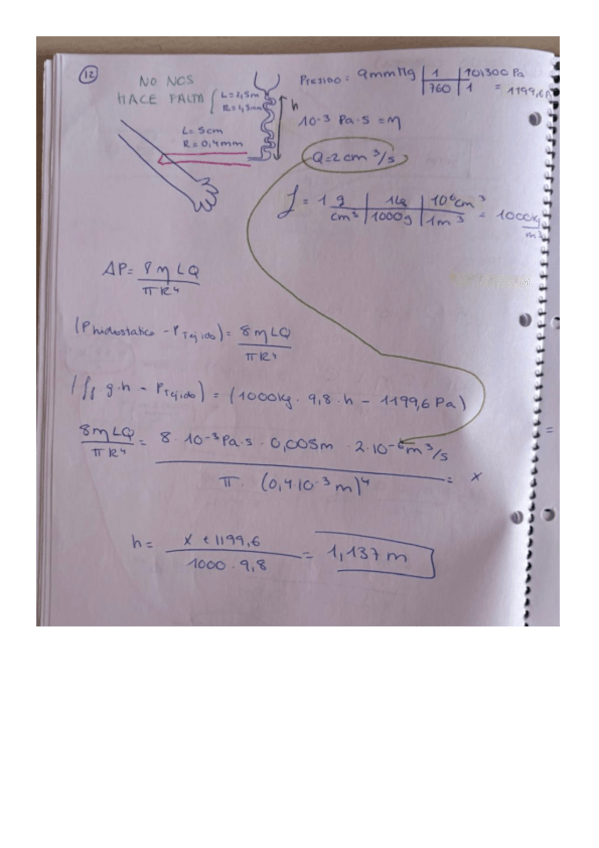 12
NO NOS
HACE FALTA
L=1,5m
R=1,5mm
h
L=5cm
R=0,4mm
PRESIÓN: 9mmHg | 1 / 760 | 101300 Pa / 1 = 1199,6
10⁻³ Pa·s = η
Q=2cm³/s
ρ = 1 g / cm³ | 1kg / 1000g | 10⁶cm³ / 1m³ = 1000kg / m³
ΔP = 8ηLQ / πR⁴
(Phidrostática - PTejido) = 8ηLQ / πR⁴
g·h - PTejido) = (1000kg · 9,8·h - 1199,6 Pa)
8ηLQ / πR⁴ = 8·10⁻³Pa·s · 0,005m · 2·10⁻⁶m³/s / π · (0,4·10⁻³m)⁴ = x
h = x + 1199,6 / 1000·9,8 = 1,137m